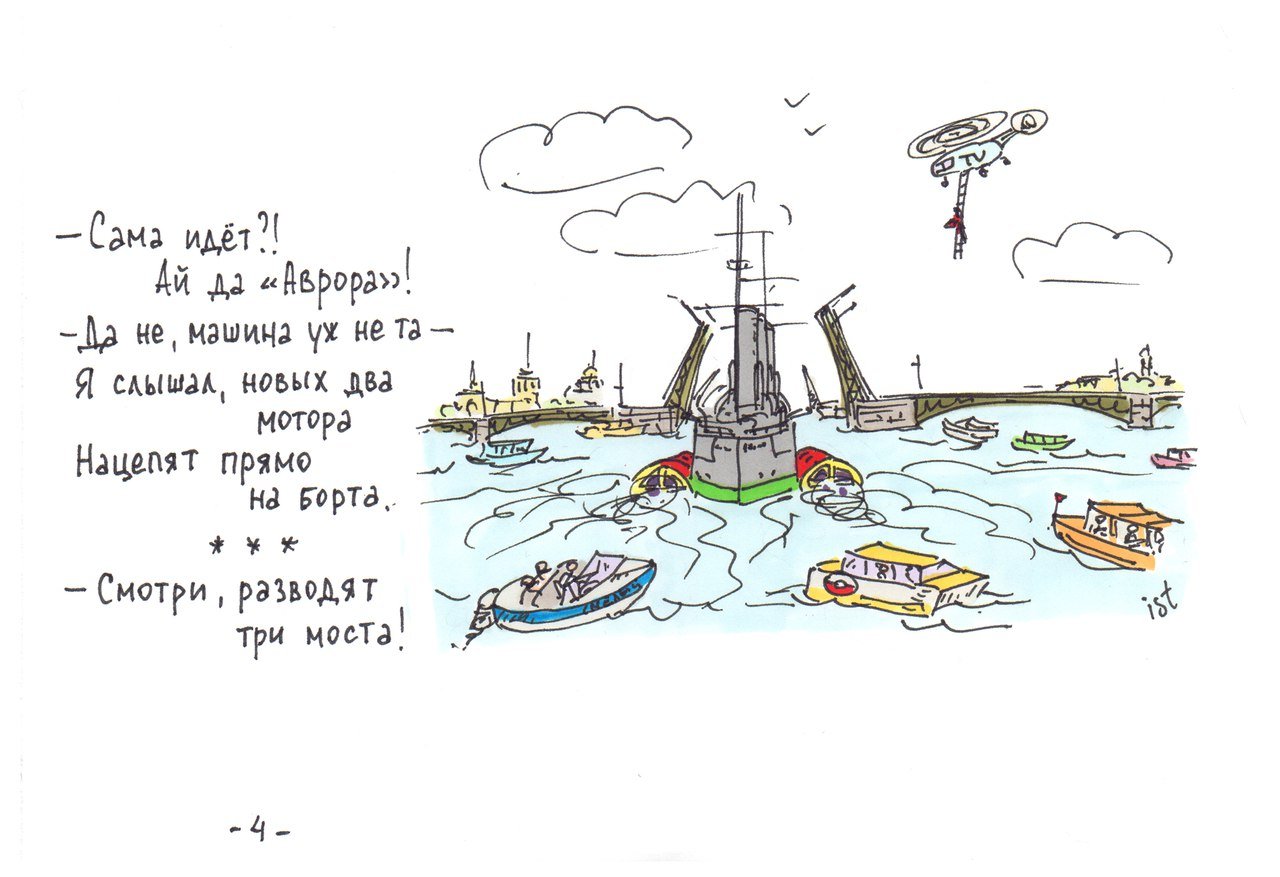 — Сама идёт?!
Ай да «Аврора»!
— Да не, машина уж не та —
Я слышал, новых два
мотора
Нацепят прямо
на борта.
* * *
— Смотри, разводят
три моста!
TV
ist
- 4 -